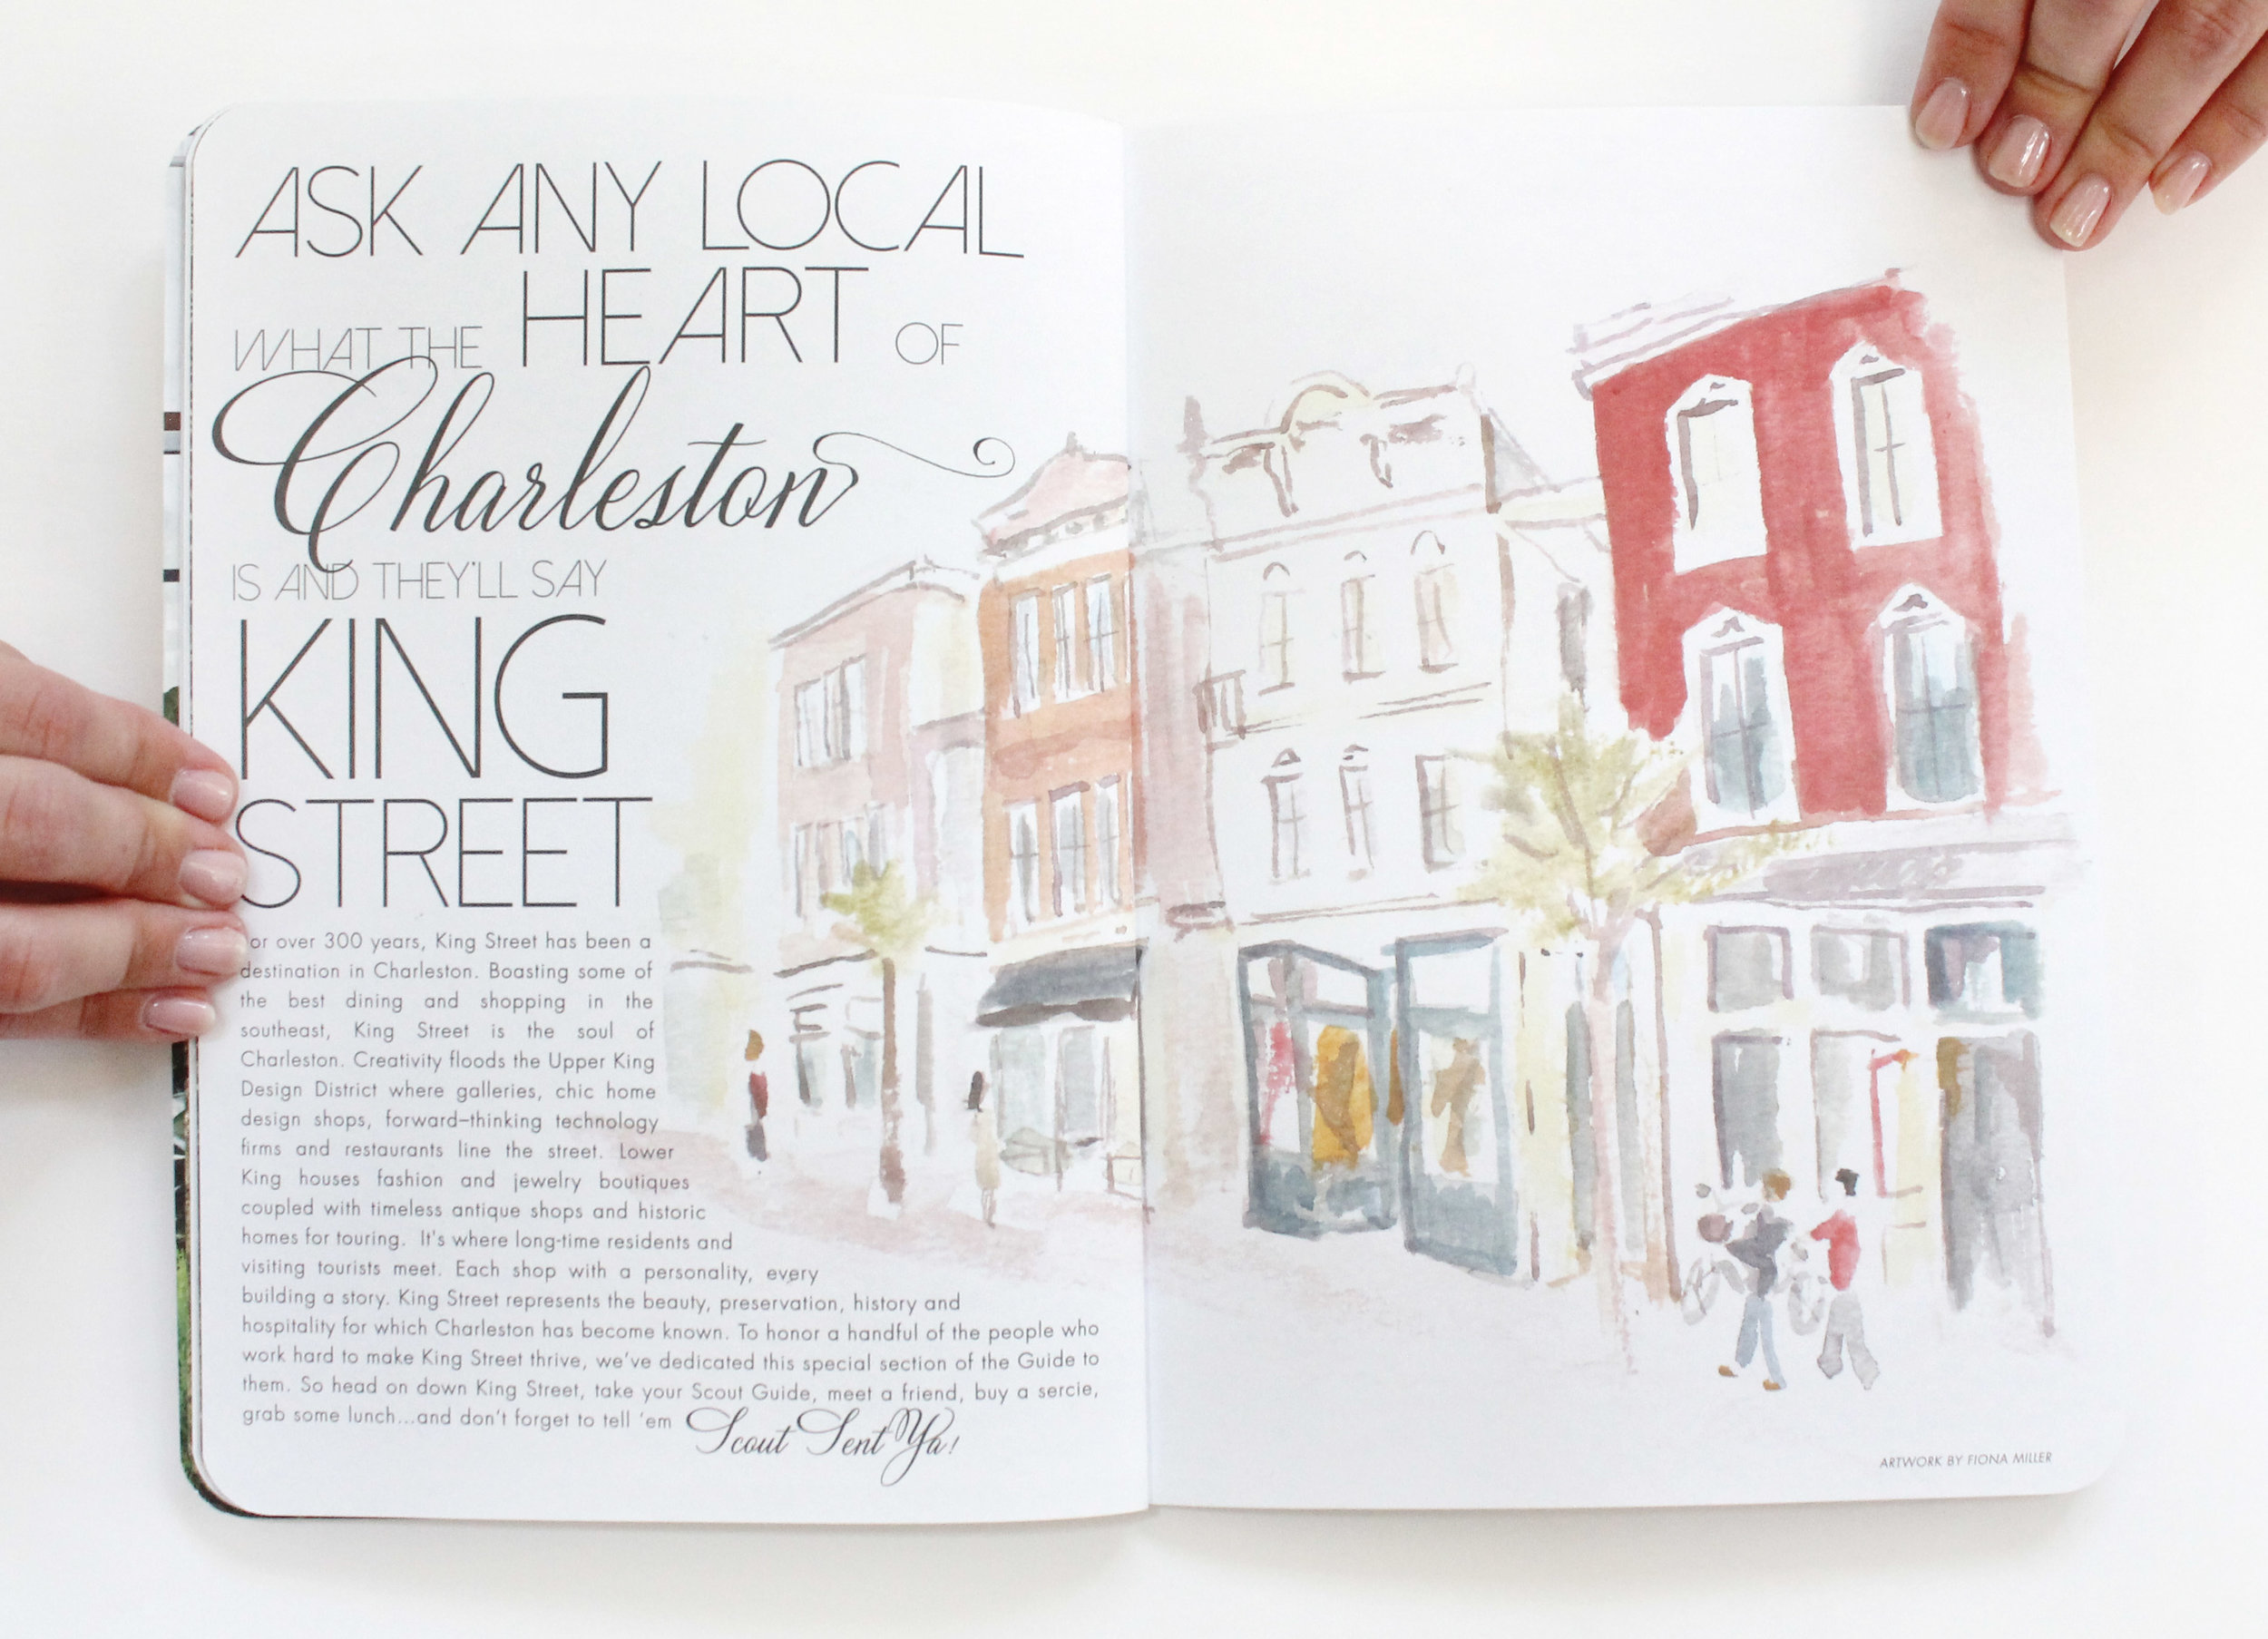 ASK ANY LOCAL
WHAT THE HEART OF
Charleston
IS AND THEY'LL SAY
KING
STREET
or over 300 years, King Street has been a
destination in Charleston. Boasting some of
the best dining and shopping in the
southeast, King Street is the soul of
Charleston. Creativity floods the Upper King
Design District where galleries, chic home
design shops, forward–thinking technology
firms and restaurants line the street. Lower
King houses fashion and jewelry boutiques
coupled with timeless antique shops and historic
homes for touring. It's where long-time residents and
visiting tourists meet. Each shop with a personality, every
building a story. King Street represents the beauty, preservation, history and
hospitality for which Charleston has become known. To honor a handful of the people who
work hard to make King Street thrive, we've dedicated this special section of the Guide to
them. So head on down King Street, take your Scout Guide, meet a friend, buy a sercie,
grab some lunch...and don't forget to tell 'em Scout Sent Ya!
ARTWORK BY FIONA MILLER